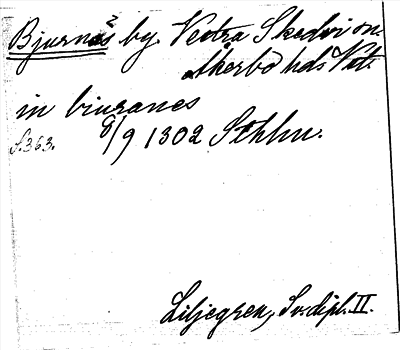 Bjurnäs by. Vestra Skedvi sn.
Åkerbo hds Vstm.
in biuranes
s. 363. 8/9 1302 Sthlm.
Liljegren, Sv. dipl. II.